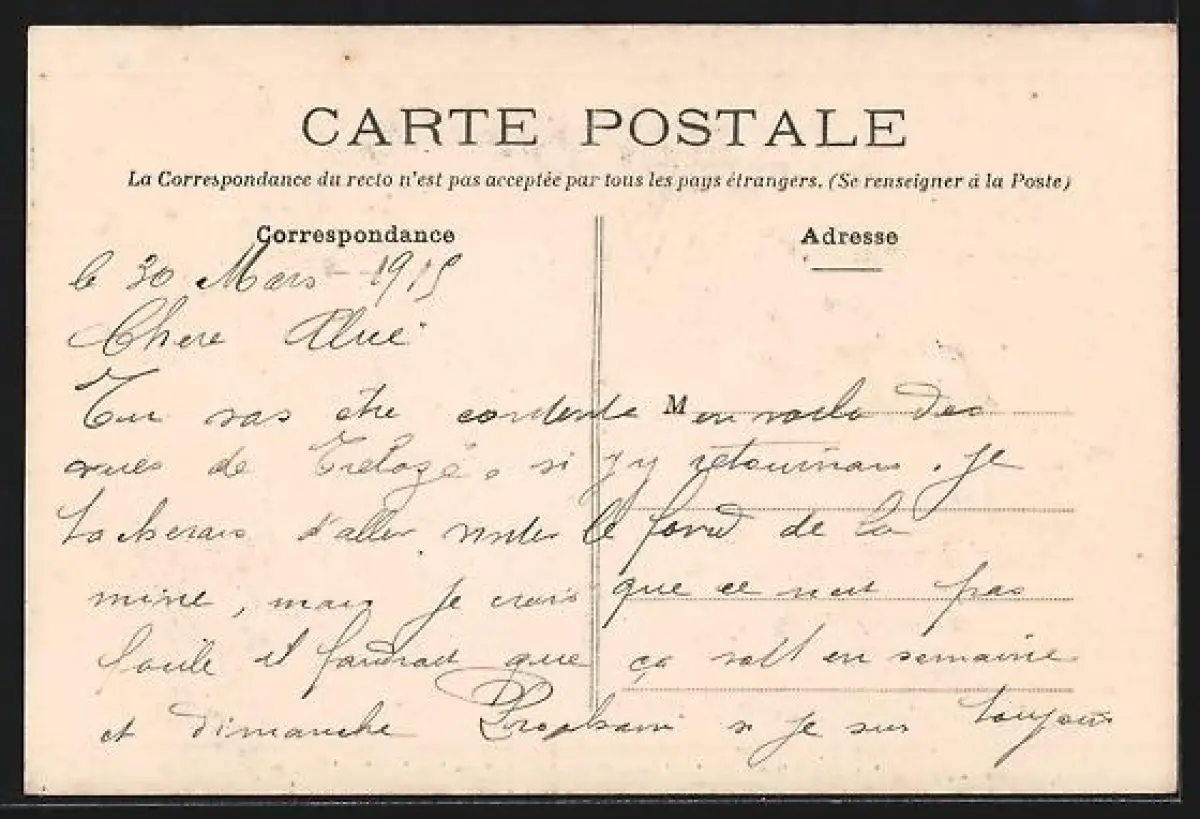 CARTE POSTALE
La Correspondance du recto n'est pas acceptée par tous les pays étrangers. (Se renseigner à la Poste)
Correspondance
Adresse
le 30 Mars 1915
Chere
Tu vas être contente M en voila des
vues de Trélazé, si j'y retournais. je
tacherais d'aller visiter le fond de la
mine, mais je crois que ce n'est pas
facile il faudrait que ça soit en semaine
et dimanche Prochain si je suis toujours